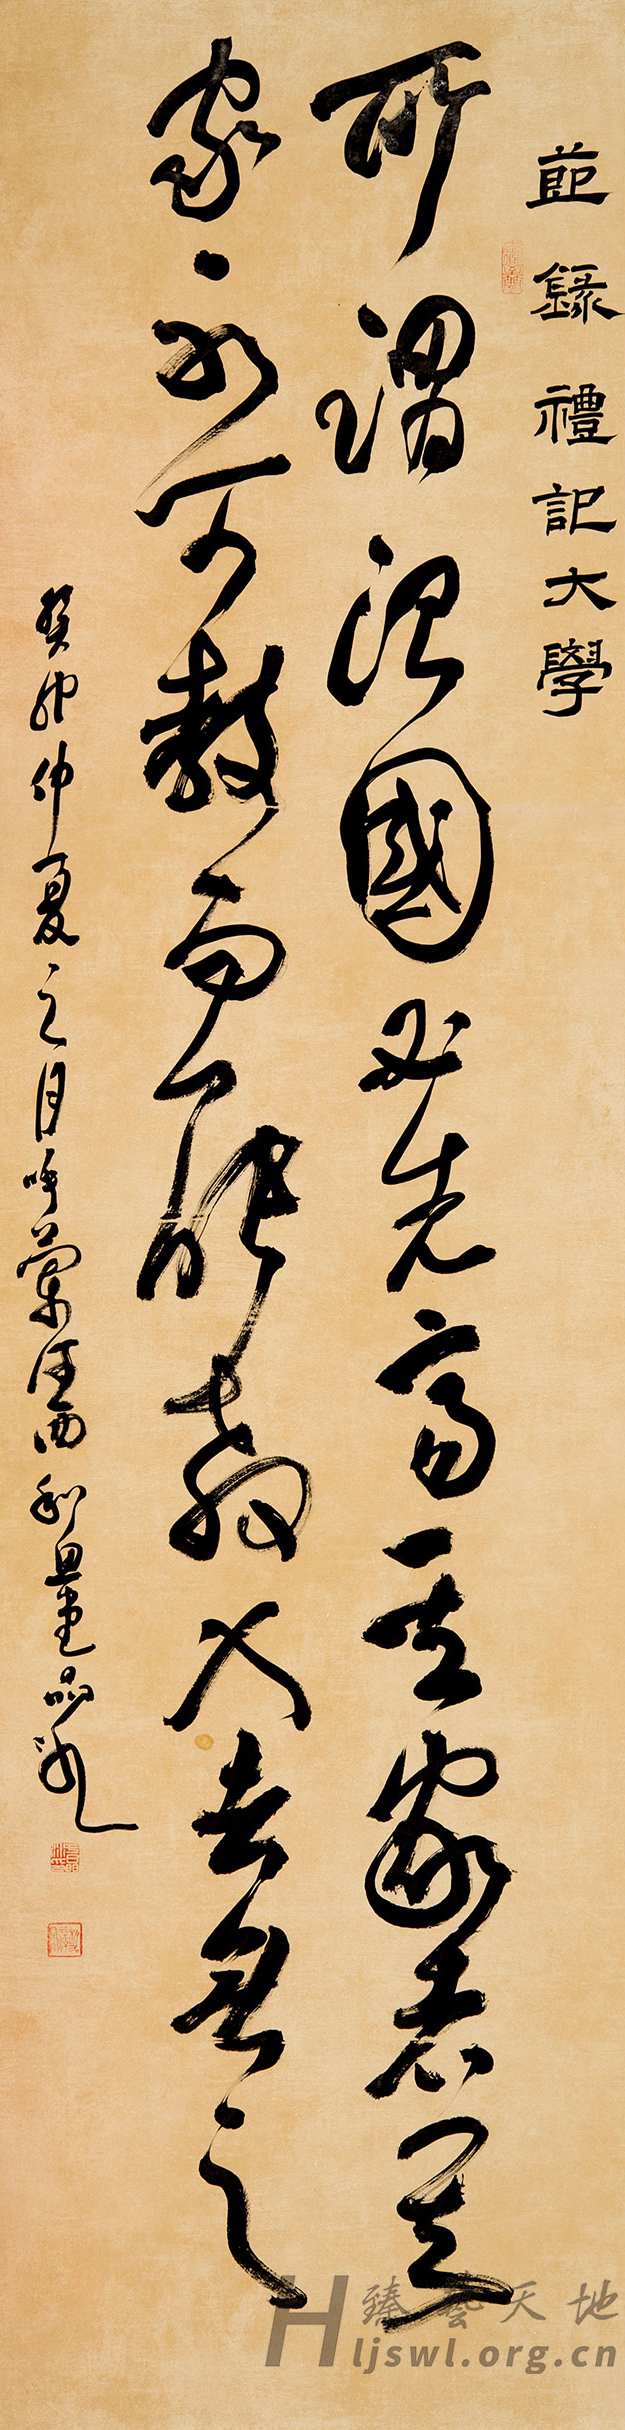 節録禮記大學
所謂治國必先齊其家者其
家不可教而能教人者無之
癸卯仲夏之月呼蘭 西利
臻藝天地
Hljswl.org.cn